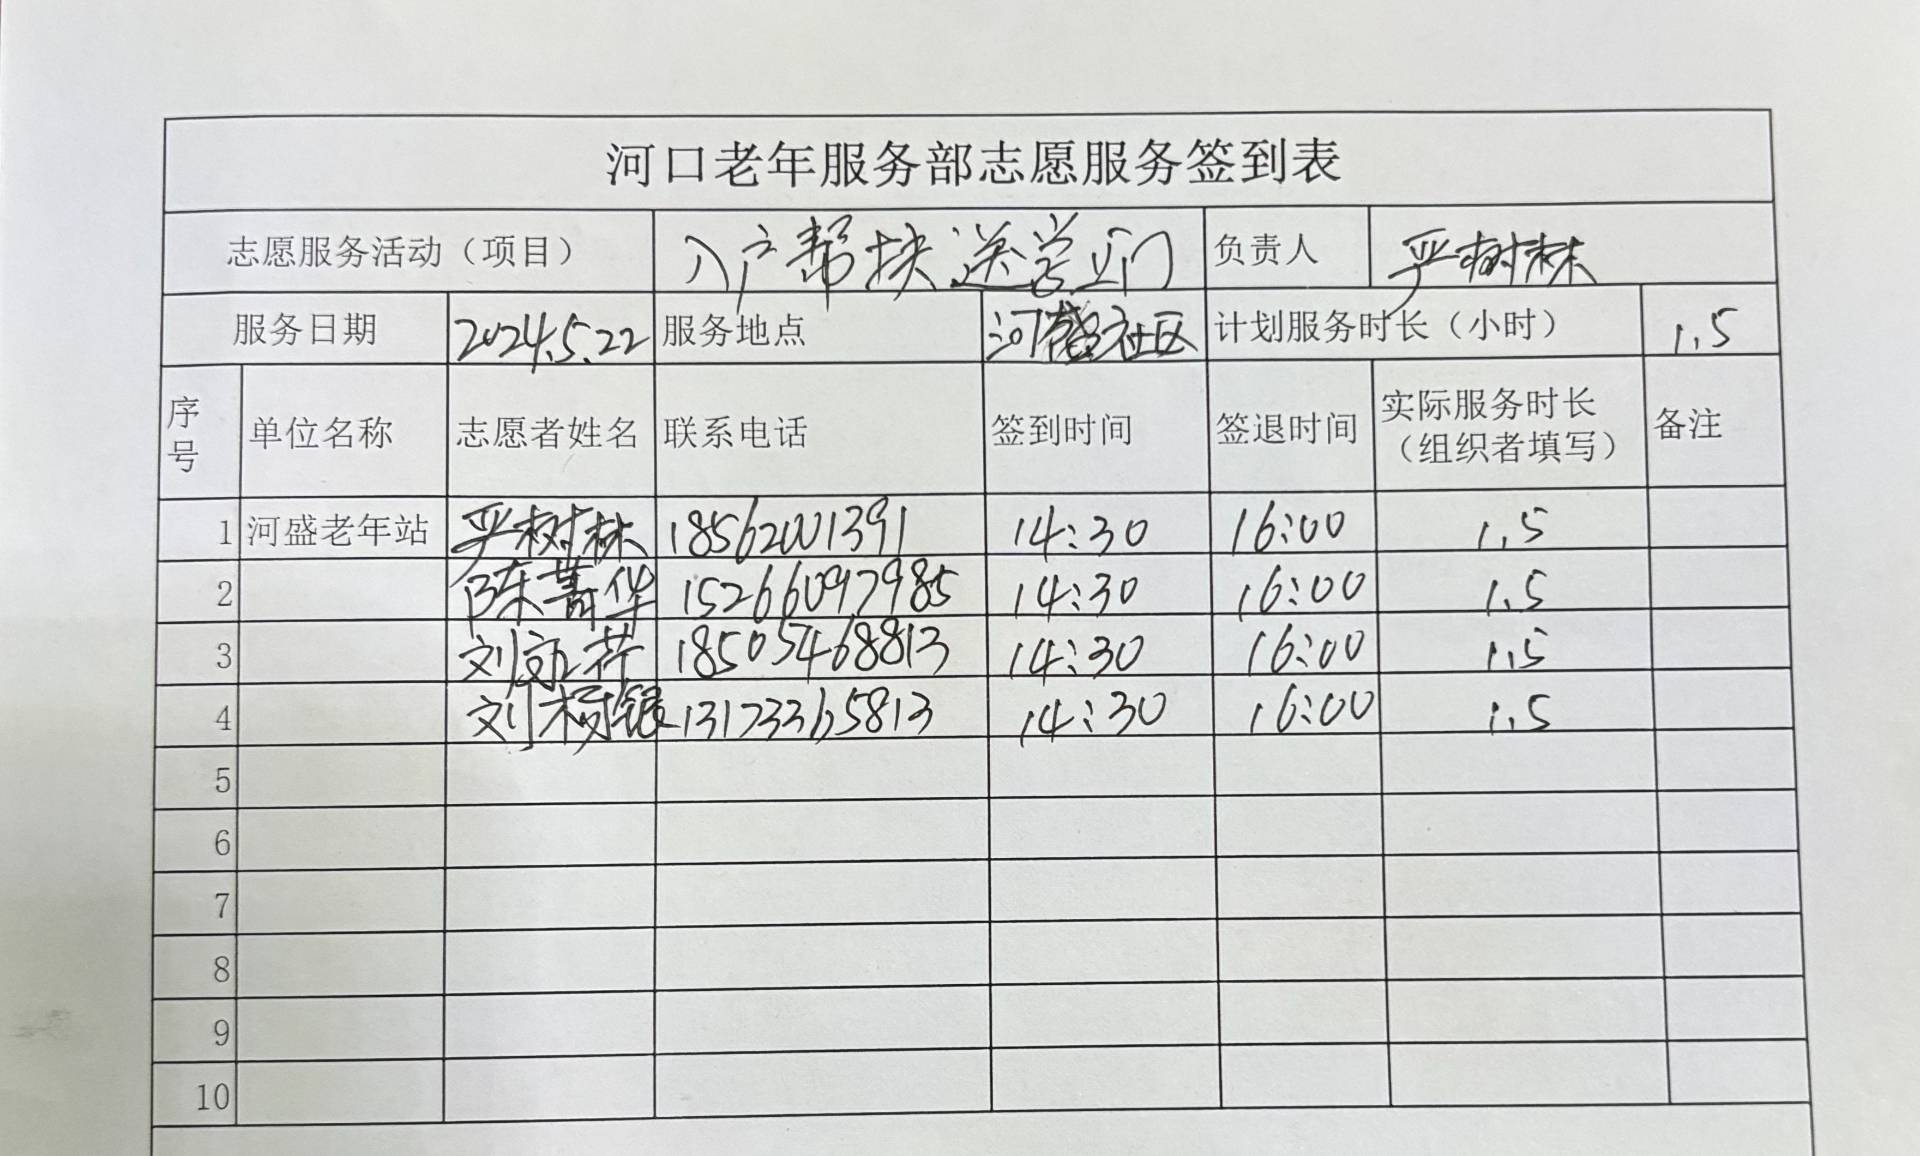 河口老年服务部志愿服务签到表
志愿服务活动（项目） 入户帮扶送学上门 负责人 严树林
服务日期 2024.5.22 服务地点 河盛社区 计划服务时长（小时） 1.5
序号 单位名称 志愿者姓名 联系电话 签到时间 签退时间 实际服务时长（组织者填写） 备注
1 河盛老年站 严树林 18562001391 14:30 16:00 1.5
2 陈菁华 15266097985 14:30 16:00 1.5
3 刘 18505468813 14:30 16:00 1.5
4 刘杨银 13173365813 14:30 16:00 1.5
5
6
7
8
9
10